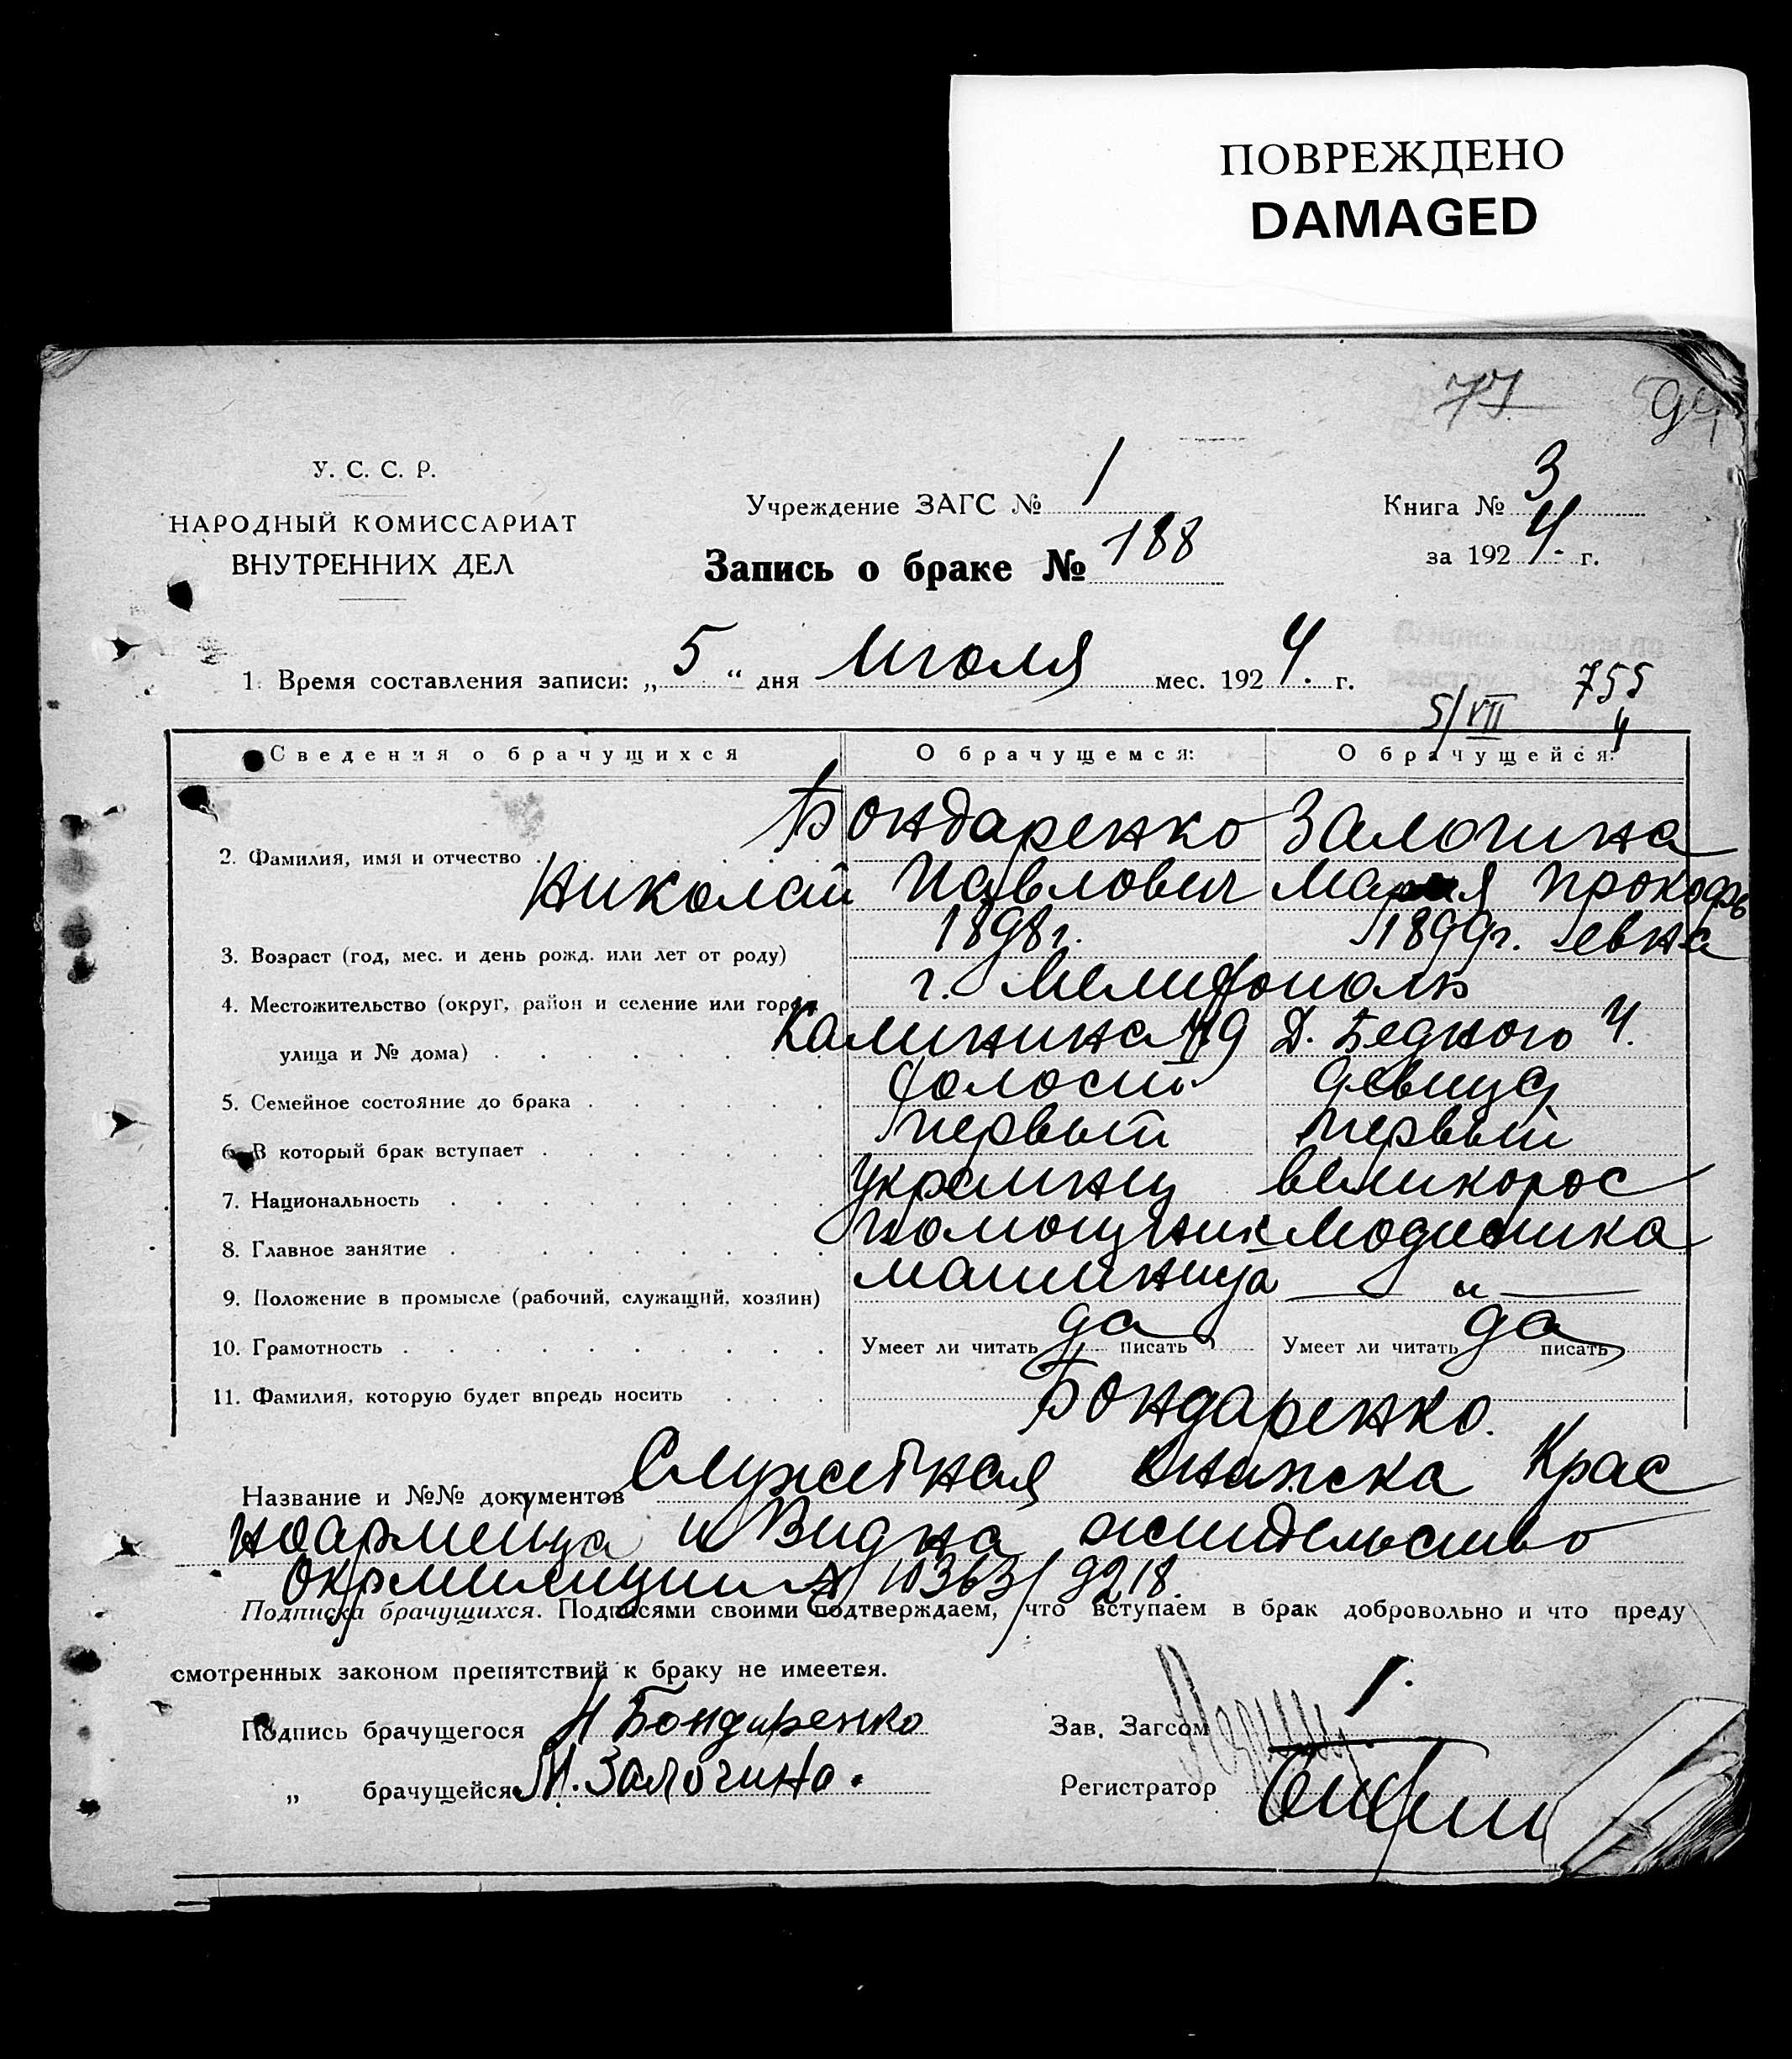 ПОВРЕЖДЕНО
DAMAGED
77
У. С. С. Р.
НАРОДНЫЙ КОМИССАРИАТ
ВНУТРЕННИХ ДЕЛ
Учреждение ЗАГС № 1
Запись о браке № 188
Книга № 3
за 1924. г.
1. Время составления записи: „5“ дня Июля мес. 1924. г.
755
5/VII 4
Сведения о брачущихся О брачущемся: О брачущейся:
2. Фамилия, имя и отчество Бондаренко Залогина
Николай Павлович Мария Прокофь
евна
3. Возраст (год, мес. и день рожд. или лет от роду) 1898г. 1899г.
4. Местожительство (округ, район и селение или город, г. Мелитополь
улица и № дома) Калинина 49 Д. Бедного 4.
5. Семейное состояние до брака холост девица
6. В который брак вступает первый первый
7. Национальность украинец великорос
8. Главное занятие помощник модистка
машиниста
9. Положение в промысле (рабочий, служащий, хозяин) — „ —
10. Грамотность Умеет ли читать да писать Умеет ли читать да писать
11. Фамилия, которую будет впредь носить Бондаренко.
Название и №№ документов Служебная книжка Крас
ноармейца и Вид на жительство
Окрмилиции № 10363/9218.
Подписка брачущихся. Подписями своими подтверждаем, что вступаем в брак добровольно и что преду
смотренных законом препятствий к браку не имеется.
Подпись брачущегося Н Бондаренко
Зав. Загсом
„ брачущейся М. Залогина.
Регистратор